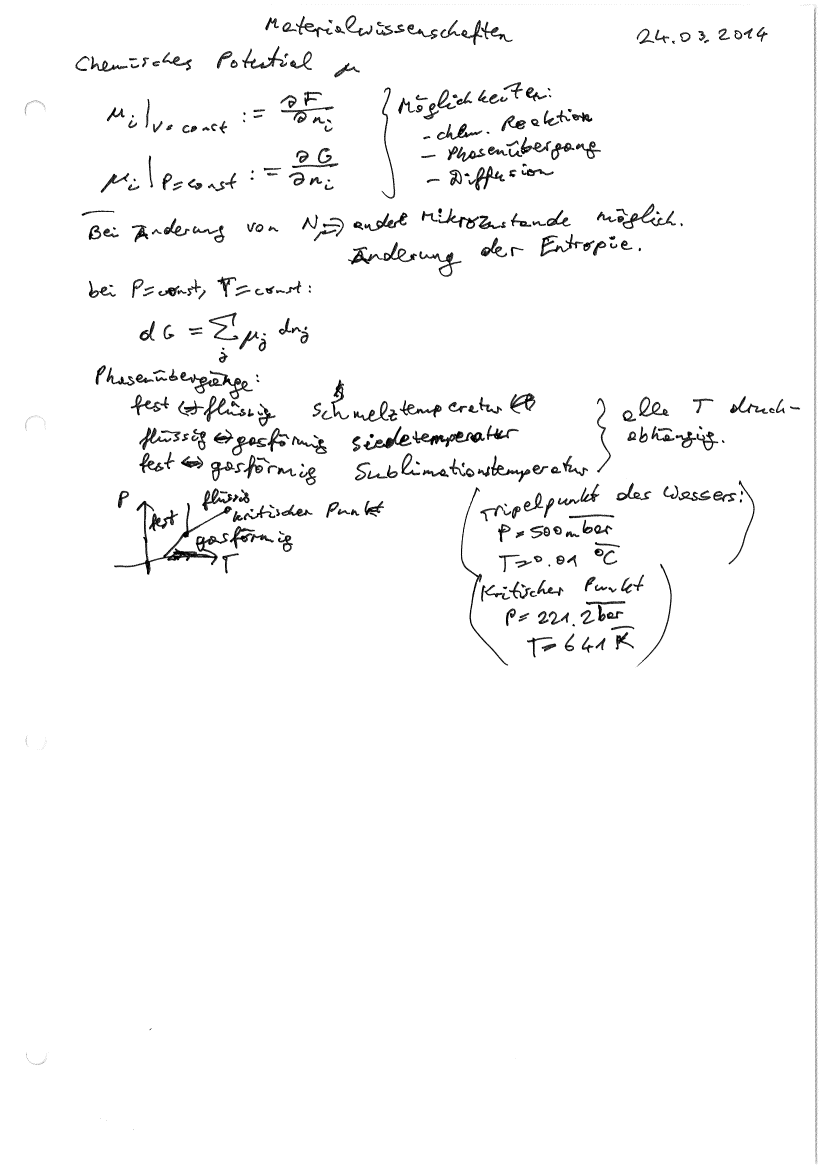 Materialwissenschaften 24.03.2014
Chemisches Potential μ
μi|V=const := ∂F/∂ni
μi|P=const := ∂G/∂ni
Möglichkeiten:
- chem. Reaktion
- Phasenübergang
- Diffusion
Bei Änderung von Ni => andere Mikrozustände möglich.
Änderung der Entropie.
bei P=const, T=const:
dG = Σj μj dnj
Phasenübergänge:
fest <=> flüssig Schmelztemperatur
flüssig <=> gasförmig Siedetemperatur
fest <=> gasförmig Sublimationstemperatur
alle T druck-
abhängig.
P
fest
flüssig
kritischer Punkt
gasförmig
T
Tripelpunkt des Wassers:
P = 500 mbar
T=0.01 °C
Kritischer Punkt
P= 221.2 bar
T= 641 K